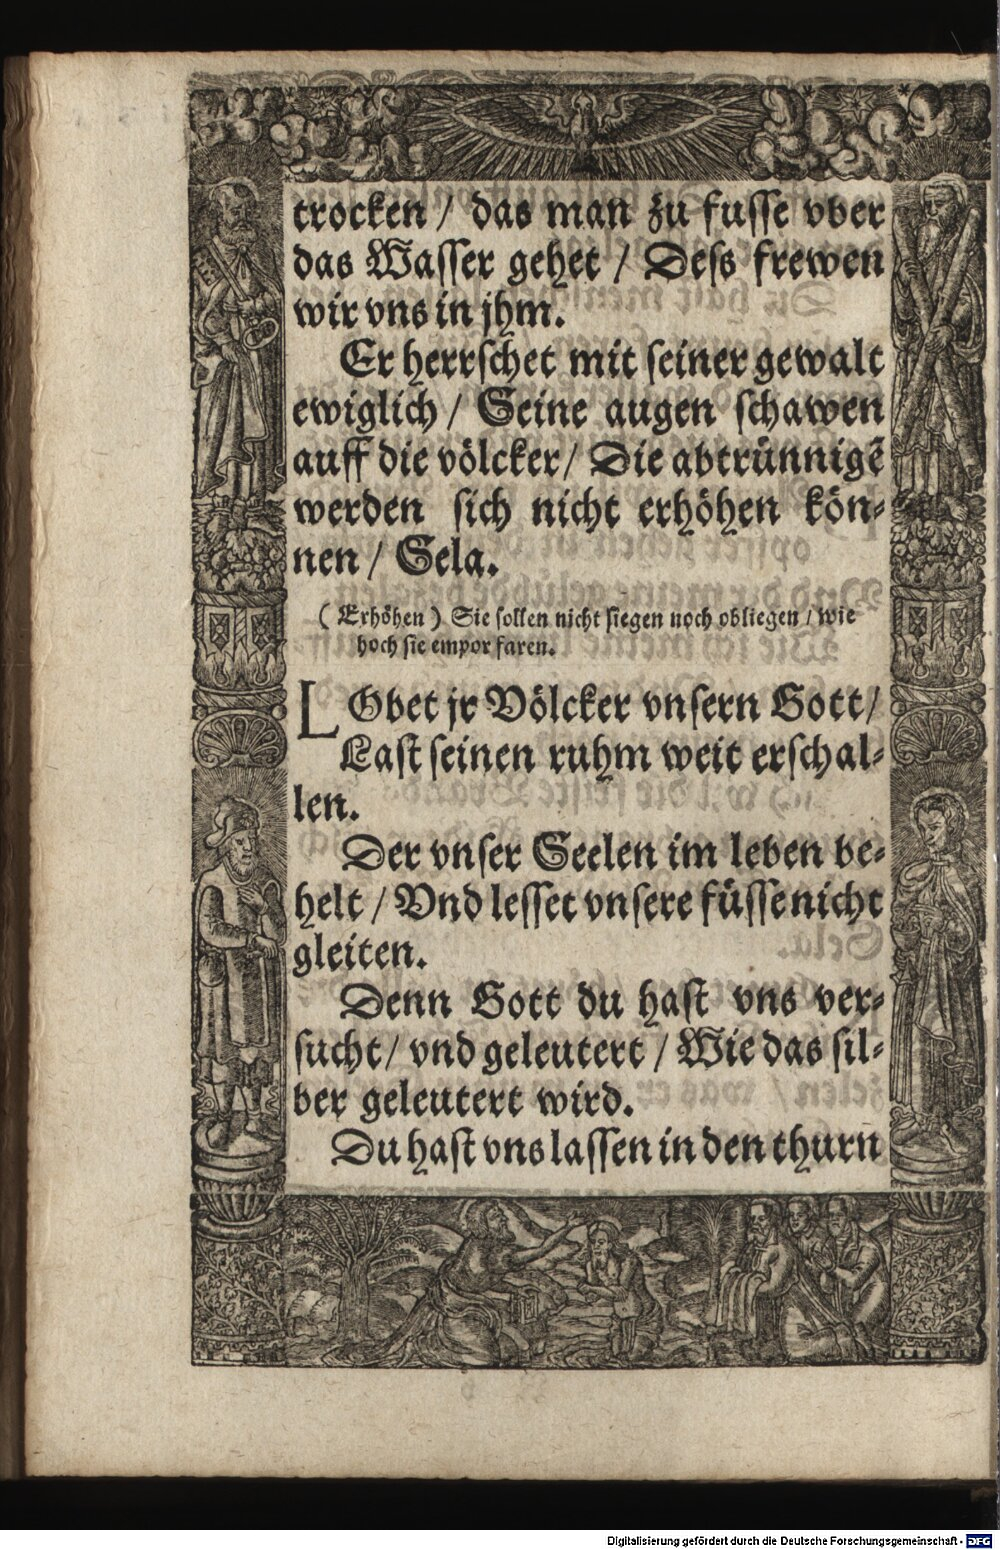 trocken / das man zu fusse vber
das Wasser gehet / Dess frewen
wir vns in jhm.
Er herrschet mit seiner gewalt
ewiglich / Seine augen schawen
auff die völcker / Die abtrünnigẽ
werden sich nicht erhöhen kön-
nen / Sela.
( Erhöhen ) Sie sollen nicht siegen noch obliegen / wie
hoch sie empor faren.
LObet jr Völcker vnsern Gott /
Last seinen ruhm weit erschal-
len.
Der vnser Seelen im leben be-
helt / Vnd lesset vnsere füsse nicht
gleiten.
Denn Gott du hast vns ver-
sucht / vnd geleutert / Wie das sil-
ber geleutert wird.
Du hast vns lassen in den thurn
Digitalisierung gefördert durch die Deutsche Forschungsgemeinschaft - DFG